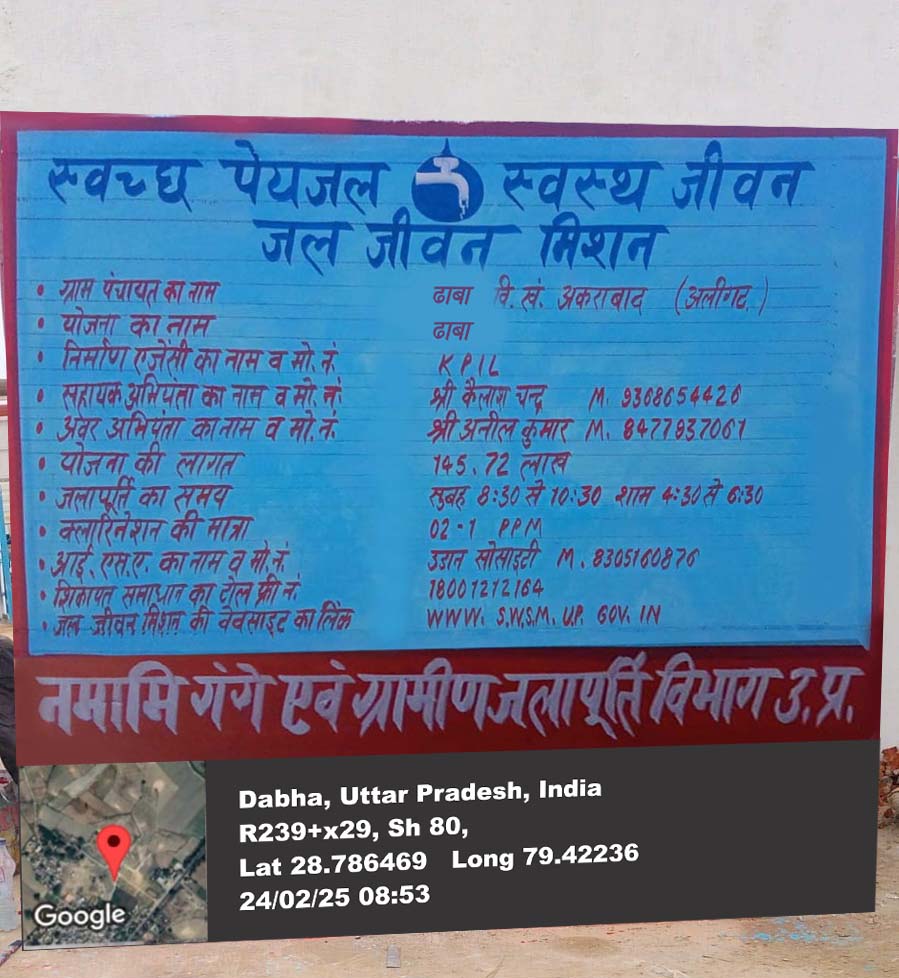 स्वच्छ पेयजल स्वस्थ जीवन
जल जीवन मिशन
• ग्राम पंचायत का नाम ढाबा वि.खं. अकराबाद (अलीगढ़)
• योजना का नाम ढाबा
• निर्माण एजेंसी का नाम व मो.नं. KPIL
• सहायक अभियंता का नाम व मो.नं. श्री कैलाश चन्द्र M. 9368654426
• अवर अभियंता का नाम व मो.नं. श्री अनील कुमार M. 8477937061
• योजना की लागत 145.72 लाख
• जलापूर्ति का समय सुबह 8:30 से 10:30 शाम 4:30 से 6:30
• क्लारिनेशन की मात्रा 02-1 PPM
• आई.एस.ए. का नाम व मो.नं. उडान सोसाइटी M. 8305160876
• शिकायत समाधान का टोल फ्री नं. 18001212164
• जल जीवन मिशन की वेवसाइट का लिंक WWW. S.W.S.M. U.P. GOV. IN
नमामि गंगे एवं ग्रामीण जलापूर्ति विभाग उ.प्र.
Dabha, Uttar Pradesh, India
R239+x29, Sh 80,
Lat 28.786469 Long 79.42236
24/02/25 08:53
Google